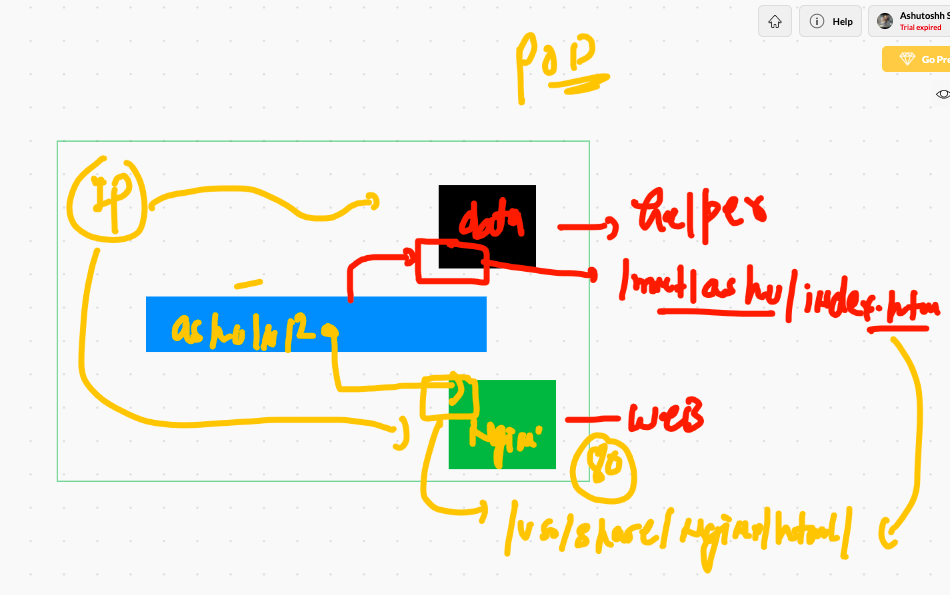 Help
Ashutoshh S
Trial expired
Go Pre
POD
IP
data
helper
/mnt/ashu/index.htm
WEB
80
/usr/share/nginx/html/